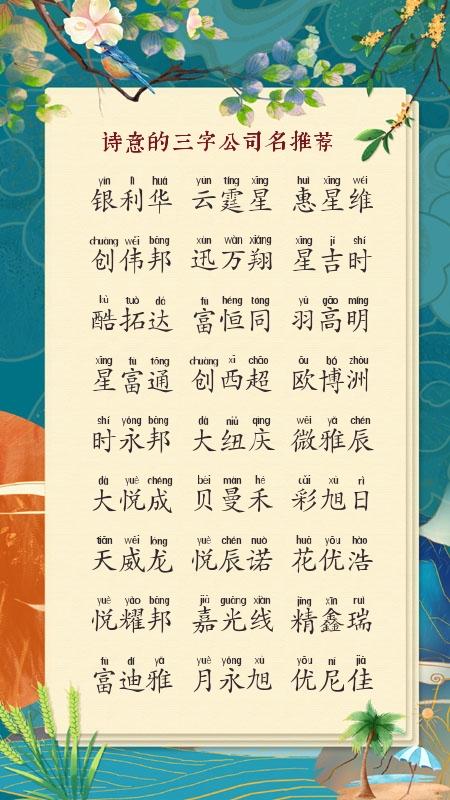 诗意的三字公司名推荐
yín lì huá yún tíng xīng huì xīng wéi
银利华 云霆星 惠星维
chuàng wěi bāng xùn wàn xiáng xīng jí shí
创伟邦 迅万翔 星吉时
kù tuò dá fù héng tóng yǔ gāo míng
酷拓达 富恒同 羽高明
xīng fù tōng chuàng xī chāo ōu bó zhōu
星富通 创西超 欧博洲
shí yǒng bāng dà niǔ qìng wēi yǎ chén
时永邦 大纽庆 微雅辰
dà yuè chéng bèi màn hé cǎi xù rì
大悦成 贝曼禾 彩旭日
tiān wēi lóng yuè chén nuò huā yōu hào
天威龙 悦辰诺 花优浩
yuè yào bāng jiā guāng xiàn jīng xīn ruì
悦耀邦 嘉光线 精鑫瑞
fù dí yǎ yuè yǒng xù yōu ní jiā
富迪雅 月永旭 优尼佳